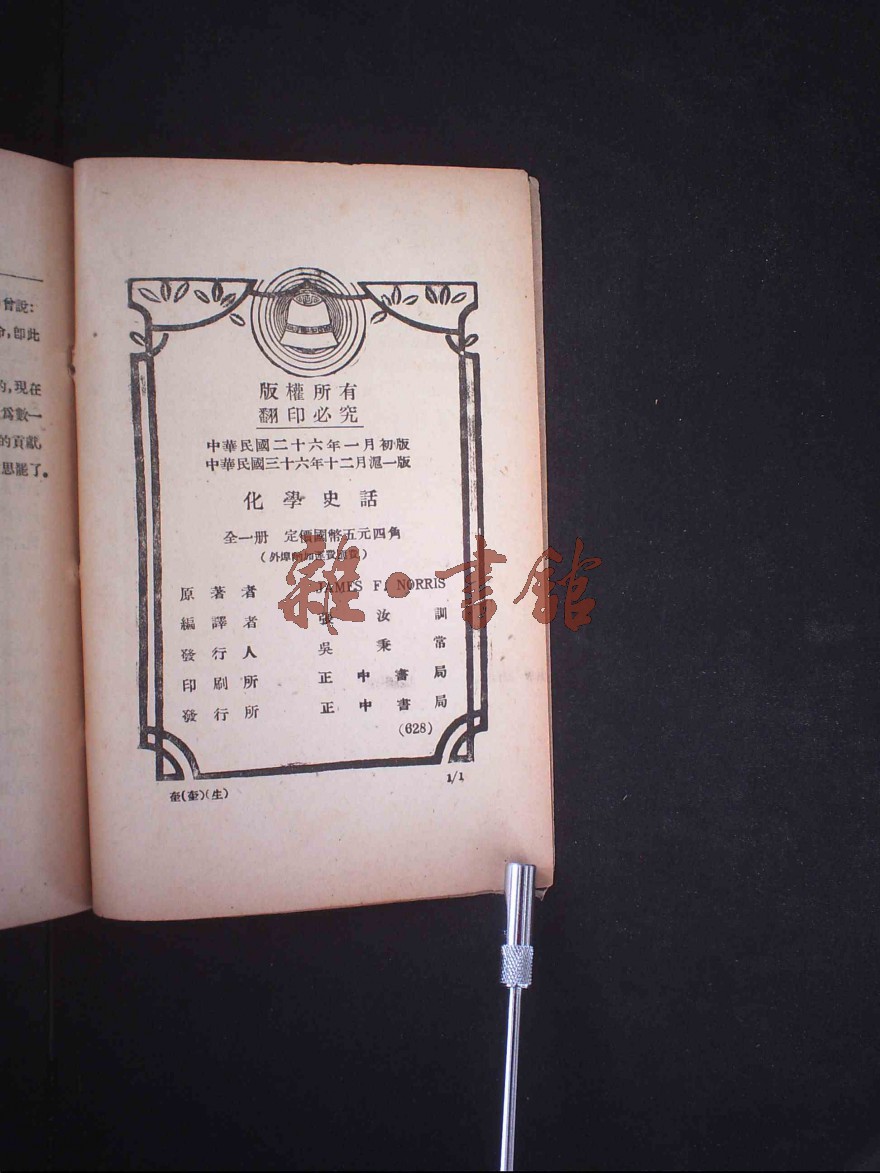 曾說:
卽此
的,現在
爲數一
的貢獻
思罷了。
版權所有
翻印必究
中華民國二十六年一月初版
中華民國三十六年十二月滬一版
化學史話
全一册 定價國幣五元四角
(外埠酌加運費匯費)
原著者 JAMES F. NORRIS
編譯者 張汝訓
發行人 吳秉常
印刷所 正中書局
發行所 正中書局
(628)
1/1
(生)
雜·書館